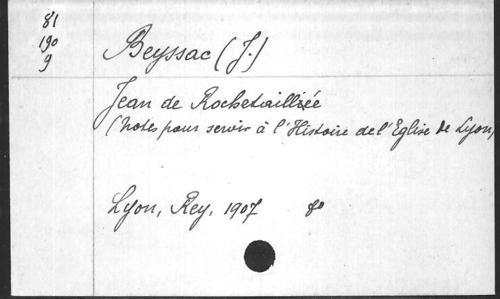 81
190
9
Beyssac (J.)
Jean de Rochetaillée
(Notes pour servir à l'Histoire de l'Eglise de Lyon)
Lyon, Rey, 1907 8°